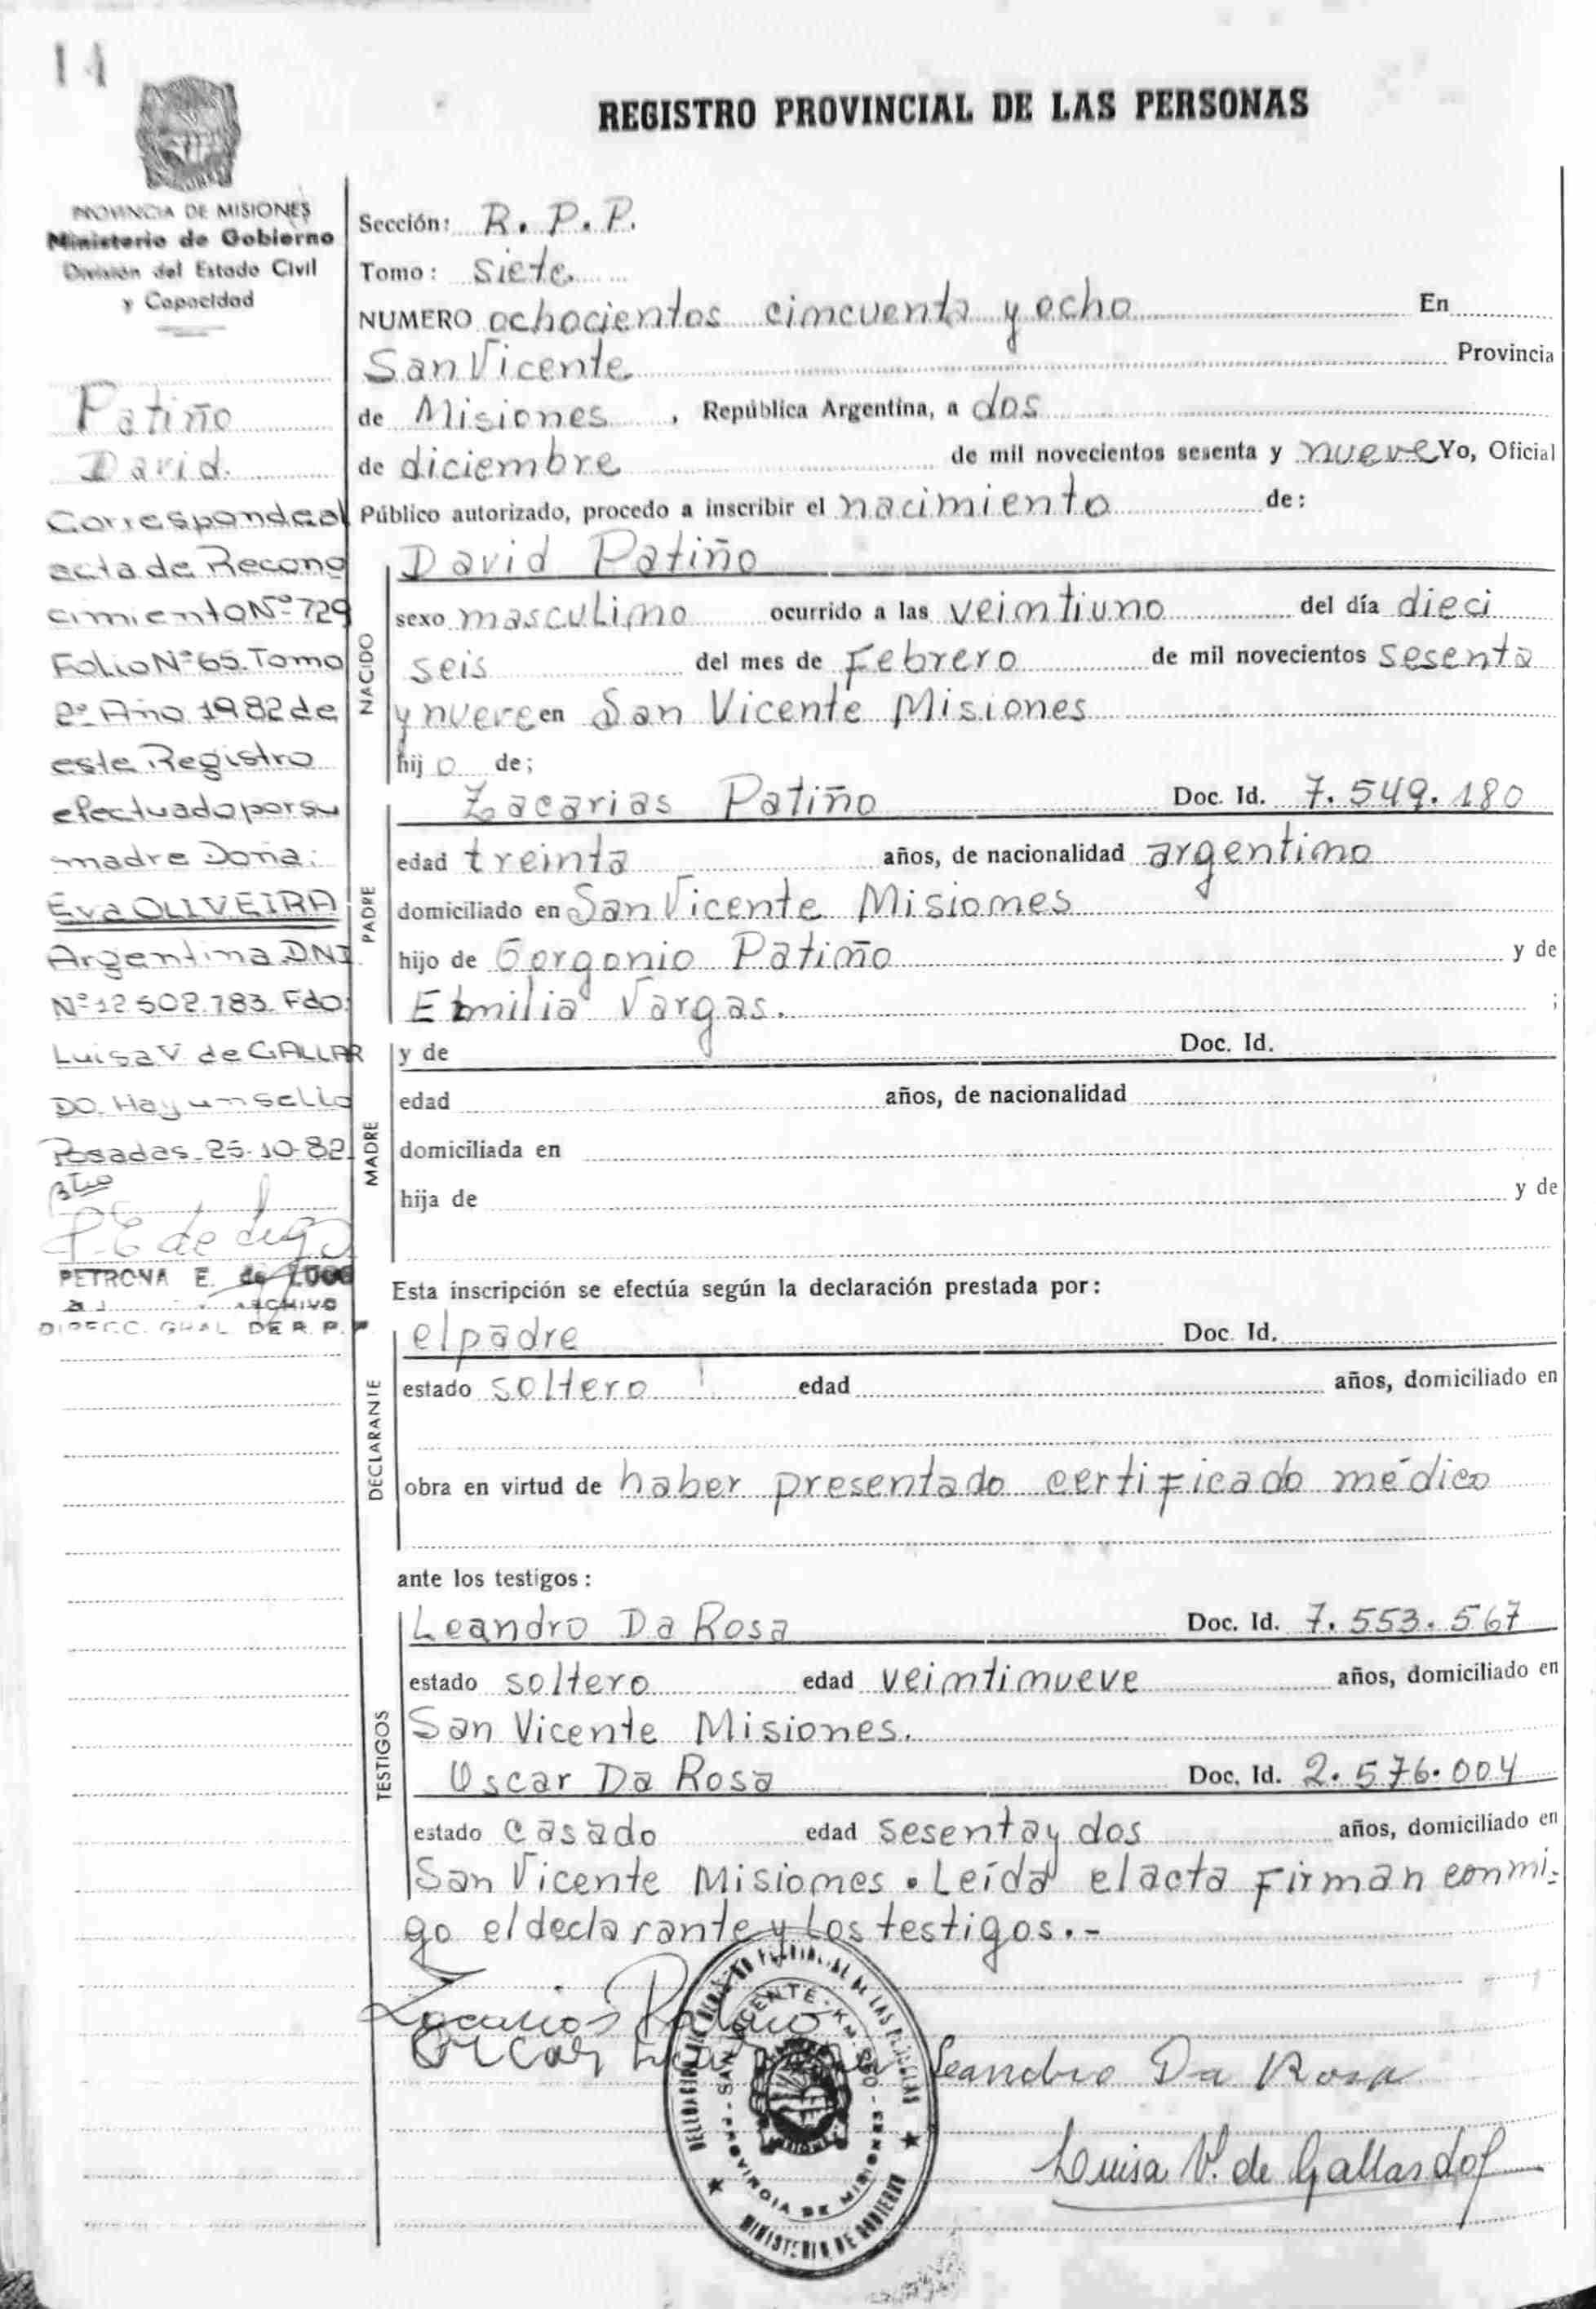 14
REGISTRO PROVINCIAL DE LAS PERSONAS
PROVINCIA DE MISIONES
Ministerio de Gobierno
División del Estado Civil
y Capacidad
Patiño
David.
Corresponde al
acta de Recono
cimiento Nº 729
Folio Nº 65. Tomo
2º Año 1982 de
este Registro
efectuado por su
madre Doña:
Eva OLIVEIRA
Argentina. DNI
Nº 12 502.783. Fdo:
Luisa V. de GALLAR
DO. Hay un sello
Posadas. 25-10-82.
P. E de Lugo
PETRONA E. de LUGO
ARCHIVO
DIRECC. GRAL. DE R. P. P
Sección: R. P. P.
Tomo: Siete
NUMERO ochocientos cimcuenta y ocho En
San Vicente Provincia
de Misiones, República Argentina, a dos
de diciembre de mil novecientos sesenta y nueve Yo, Oficial
Público autorizado, procedo a inscribir el nacimiento de:
David Patiño
NACIDO
sexo masculimo ocurrido a las veimtiuno del día dieci
seis del mes de Febrero de mil novecientos sesenta
y nueve en San Vicente Misiones
hijo de;
PADRE
Zacarias Patiño Doc. Id. 7.549.180
edad treinta años, de nacionalidad argentimo
domiciliado en San Vicente Misiomes
hijo de Gorgonio Patiño y de
Emilia Vargas. ;
MADRE
y de Doc. Id.
edad años, de nacionalidad
domiciliada en
hija de y de
Esta inscripción se efectúa según la declaración prestada por:
DECLARANTE
el padre Doc. Id.
estado soltero edad años, domiciliado en
obra en virtud de haber presentado certificado médico
ante los testigos:
TESTIGOS
Leandro Da Rosa Doc. Id. 7.553.567
estado soltero edad veimtimueve años, domiciliado en
San Vicente Misiones.
Oscar Da Rosa Doc. Id. 2.576.004
estado casado edad sesenta y dos años, domiciliado en
San Vicente Misiomes. Leída el acta Firman conmi-
go el declarante y los testigos.-
Zacarias Patiño
Oscar
Leandro Da Rosa
Luisa V. de Gallardo
DELEGACION DEL REGISTRO PROVINCIAL DE LAS PERSONAS
SAN VICENTE - KM.
PROVINCIA DE MISIONES
MINISTERIO DE GOBIERNO